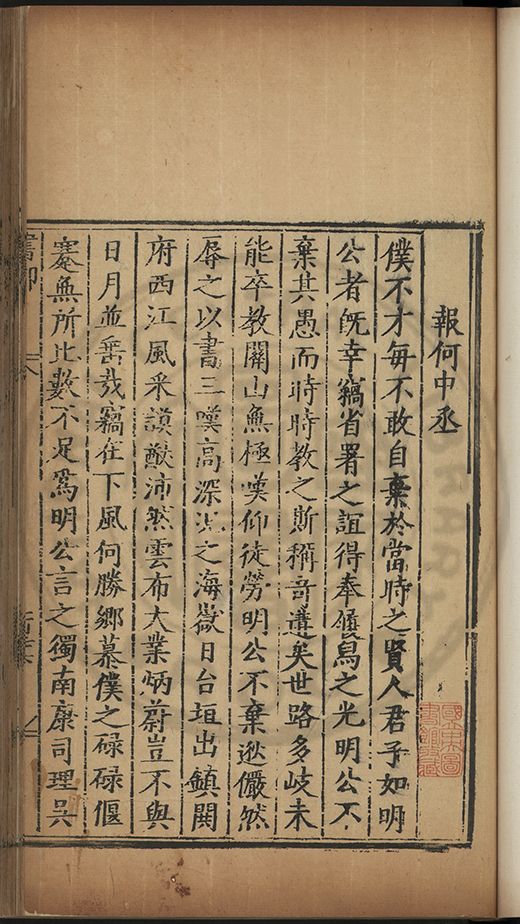 報何中丞
僕不才每不敢自棄於當時之賢人君子如明
公者旣幸竊省署之誼得奉履舄之光明公不
棄其愚而時時教之斯稱奇遘矣世路多岐未
能卒教關山無極嘆仰徒勞明公不棄逖儼然
辱之以書三嘆高深之海嶽日台垣出鎮開
府西江風采謨猷沛然雲布大業炳蔚豈不與
日月並垂哉竊在下風何勝鄉慕僕之碌碌偃
蹇無所比數不足爲明公言之獨南康司理吳